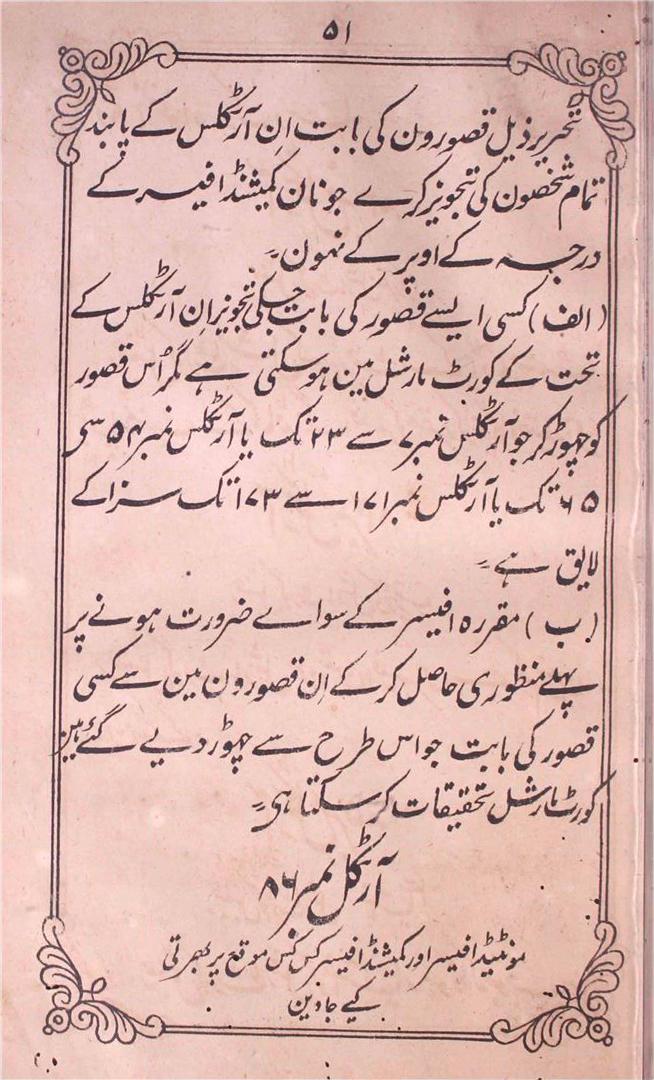 ۵۱
تحریر ذیل قصورون کی بابت اِن آرٹکلس کے پابند
تمام شخصون کی تجویز کرے جو نان کمیشنڈ افیسر کے
درجہ کے اوپر کے نہون۔
(الف) کسی ایسے قصور کی بابت جسکی تجویز اِن آرٹکلس کے
تحت کے کورٹ مارشل مین ہوسکتی ہے مگر اُس قصور
کو چھوڑ کر جو آرٹکلس نمبر ۷ سے ۲۳ تک یا آرٹکلس نمبر ۵۴ سی
۶۵ تک یا آرٹکلس نمبر ۱۷۱ سے ۱۷۳ تک سزا کے
لایق ہے۔
(ب) مقررہ افیسر کے سواے ضرورت ہونے پر
پہلے منظوری حاصل کرکے اِن قصورون مین سے کسی
قصور کی بابت جو اس طرح سے چھوڑ دیے گئے ہین
کورٹ مارشل تحقیقات کرسکتا ہی۔
آرٹکل نمبر ۸۶
اور کمیشنڈ افیسر کس کس موقع پر بھرتی
کیے جاوین